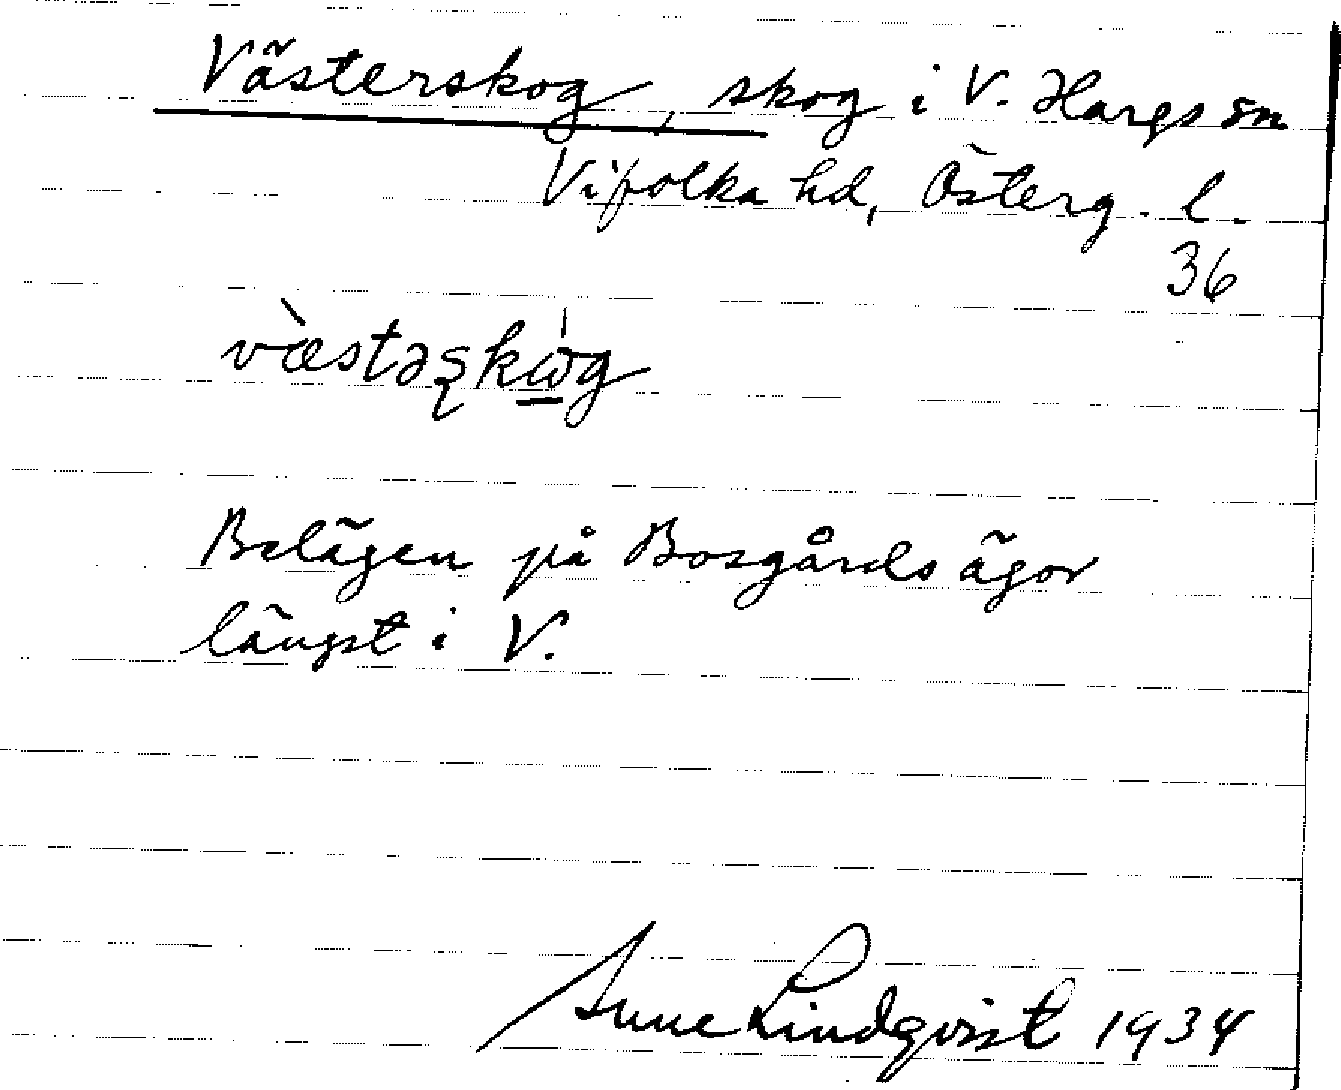 Västerskog, skog i V. Hargs sn
Vifolka hd, Österg. l.
36
væ̀stəʂkὼg
Belägen på Bosgårds ägor
längst i V.
Sune Lindqvist 1934